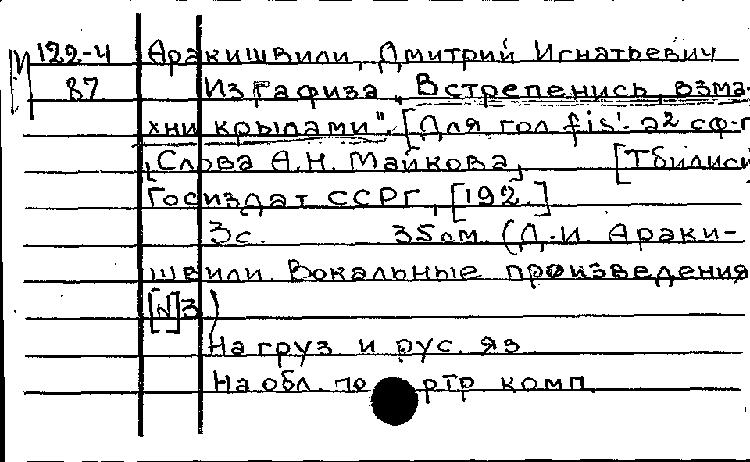 М 122-4 Аракишвили, Дмитрий Игнатьевич
87 Из Гафиза „Встрепенись, взма-
хни крылами". [Для гол. fis¹-a² с ф-п
[Слова А.Н. Майкова] [Тбилиси]
Госиздат ССРГ, [192.]
3 с. 35 см. (Д.И. Араки-
швили. Вокальные произведения
[N]3)
На груз. и рус. яз.
На обл. портр. комп.